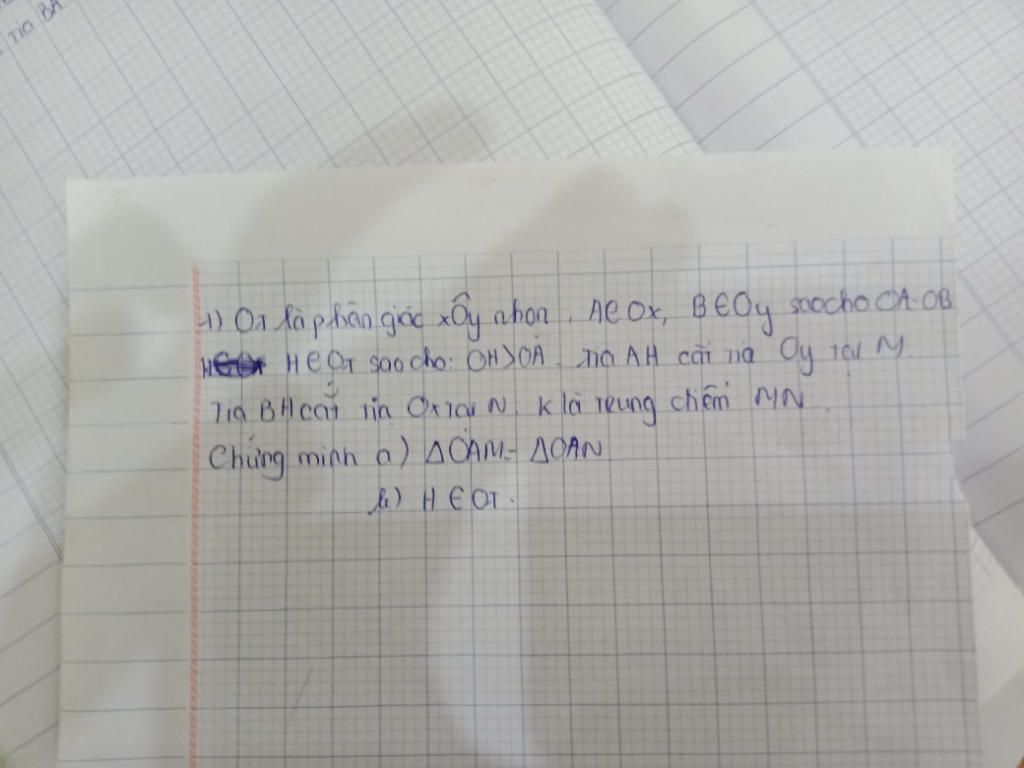 TIA BA
1) OT là phân giác xÔy nhọn. A∈Ox, B∈Oy sao cho OA=OB
H∈OT sao cho: OH>OA. Tia AH cắt tia Oy tại M
Tia BH cắt tia Ox tại N. K là trung điểm MN.
Chứng minh a) ΔOAM = ΔOAN
b) H∈OT.